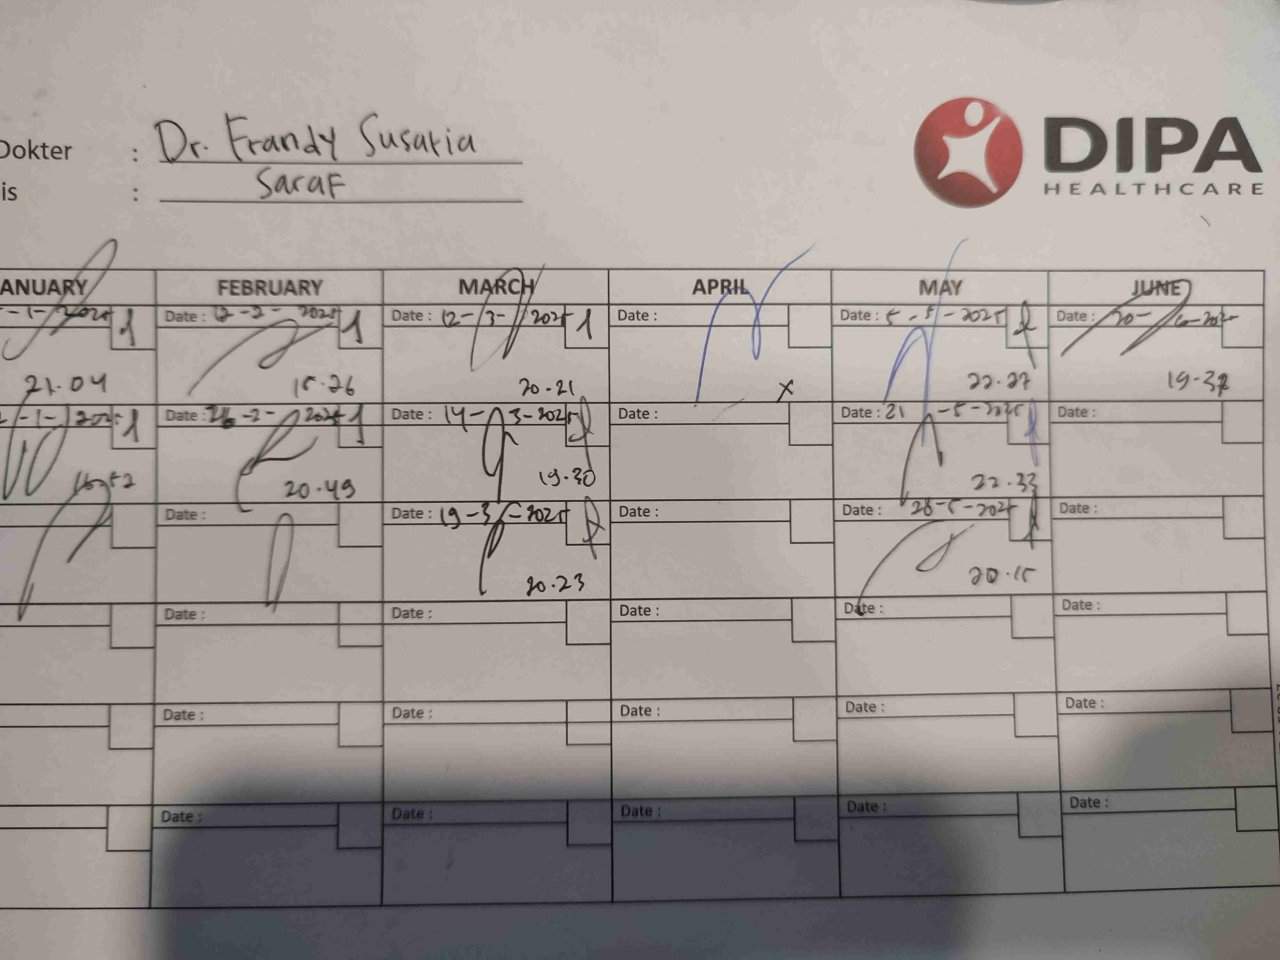 Dokter : Dr. Frandy Susatia
is : Saraf
DIPA
HEALTHCARE
ANUARY FEBRUARY MARCH APRIL MAY JUNE
-1-2025 1 Date : 12-2-2025 1 Date : 12-3-2025 1 Date : Date : 5-5-2025 Date : 20-
21.04 15.26 20.21 X 22.27 19.32
-1-2025 1 Date : 26-2-2025 1 Date : 14-3-2025 Date : Date : 21-5-2025 Date :
20.49 19.30 22.33
Date : Date : 19-3-2025 Date : Date : 28-5-2025 Date :
20.23 20.15
Date : Date : Date : Date : Date :
Date : Date : Date : Date : Date :
Date : Date : Date : Date : Date :